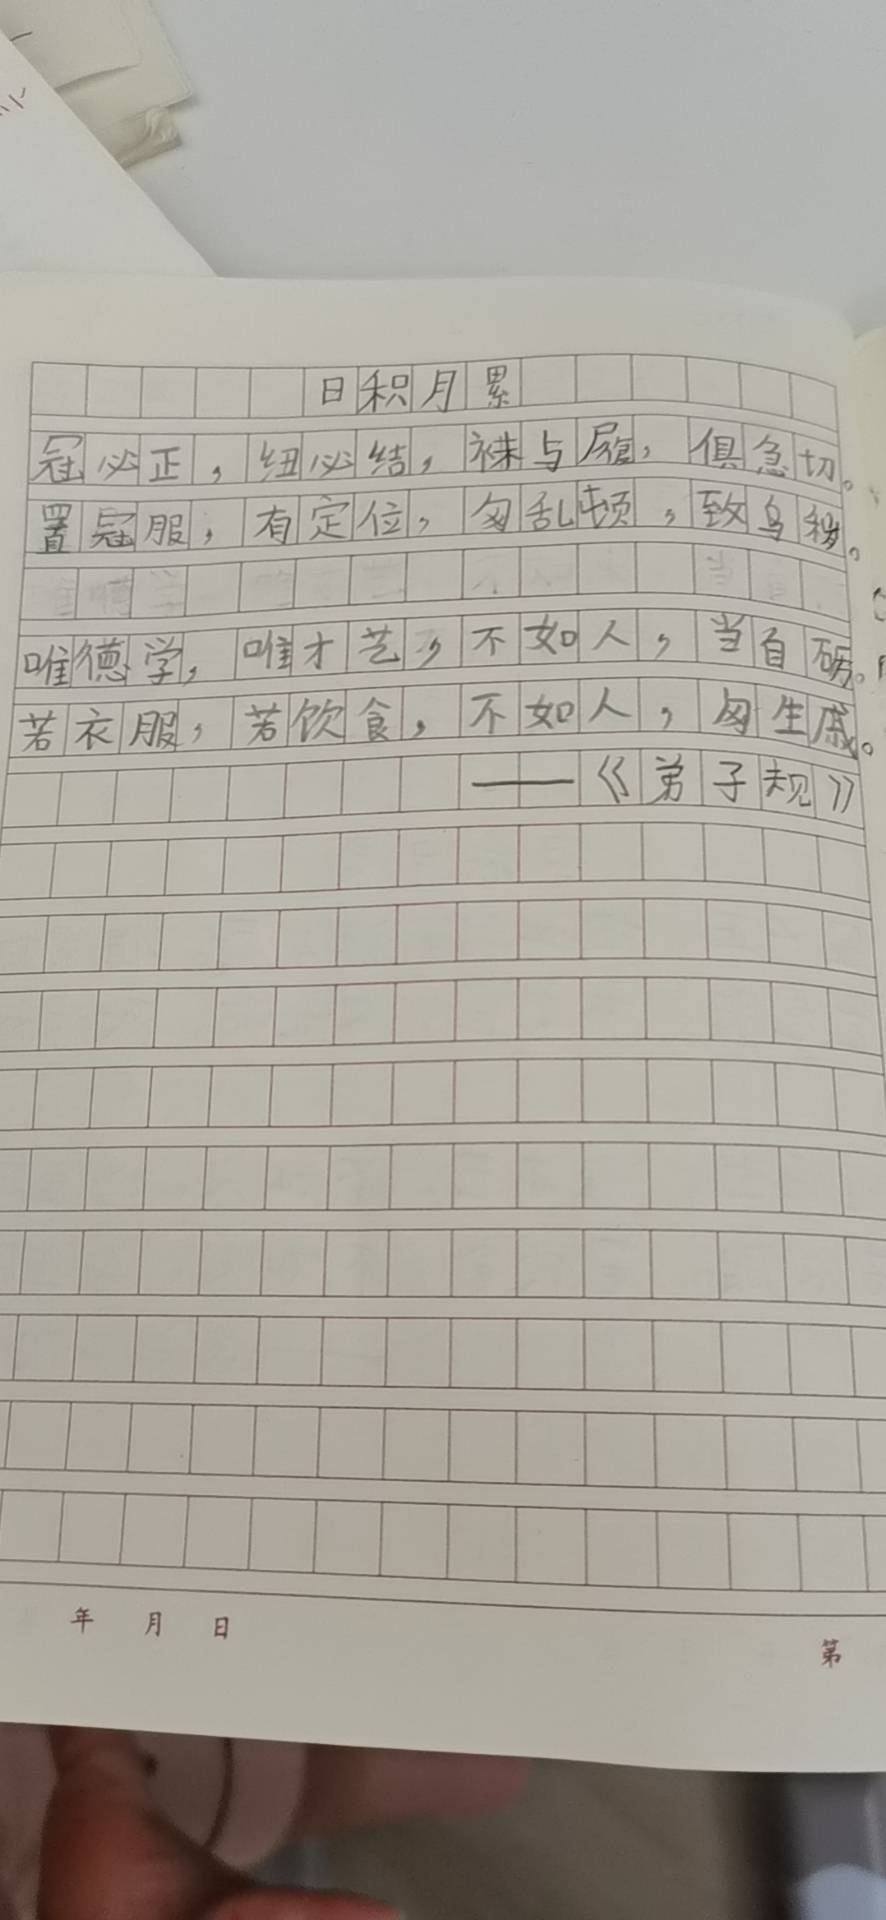 日积月累
冠必正，纽必结，袜与履，俱急切。
置冠服，有定位，匆乱顿，致乌秽。
唯德学，唯才艺，不如人，当自砺。
若衣服，若饮食，不如人，匆生戚。
——《弟子规》
年 月 日
第